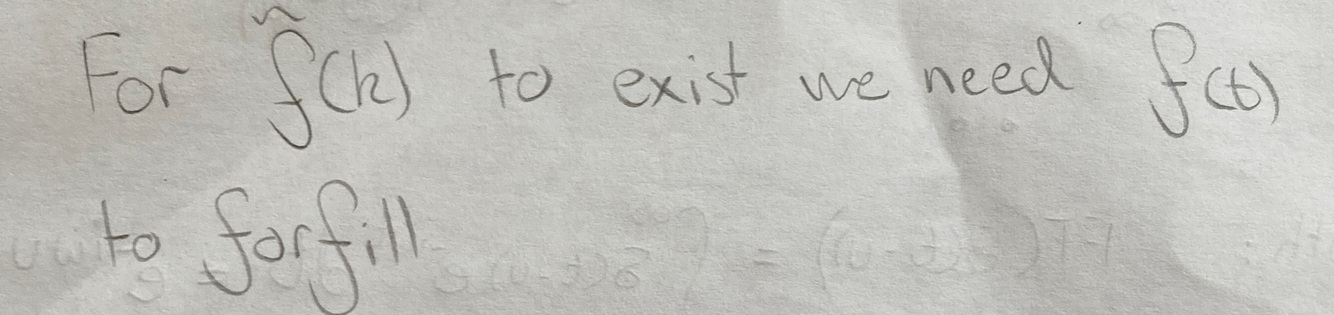 For f̃(k) to exist we need f(t)
to forfill